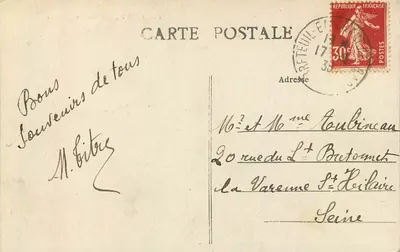 CARTE POSTALE
RÉPUBLIQUE FRANÇAISE
30c
POSTES
Adresse
Bons
Souvenirs de tous
M. Titre
Mr et Mme Aubineau
20 rue du Lt Butonnet
La Varenne St Hilaire
Seine